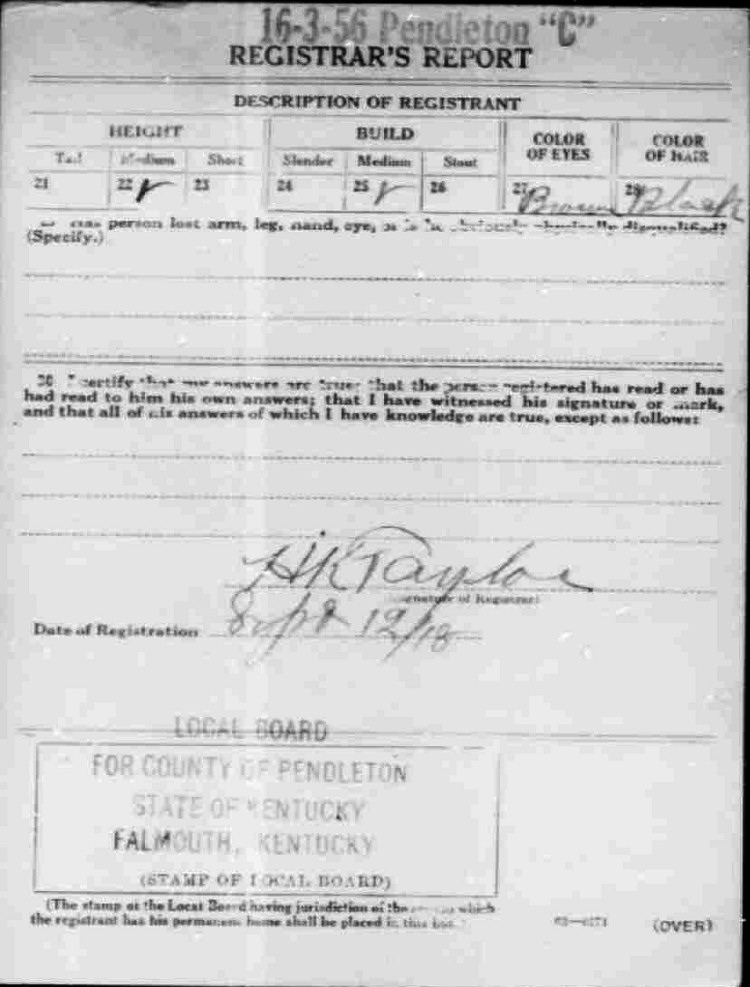 16-3-56 Pendleton "C"
REGISTRAR'S REPORT
DESCRIPTION OF REGISTRANT
HEIGHT BUILD COLOR OF EYES COLOR OF HAIR
Tall Medium Short Slender Medium Stout
21 22 ✓ 23 24 25 ✓ 26 27 Brown 28 Black
person lost arm, leg, hand, eye, or is he obviously physically disqualified?
(Specify.)
30 I certify that my answers are true; that the person registered has read or has
had read to him his own answers; that I have witnessed his signature or mark,
and that all of his answers of which I have knowledge are true, except as follows:
HK Taylor
(Signature of Registrar)
Date of Registration Sept 12/18
LOCAL BOARD
FOR COUNTY OF PENDLETON
STATE OF KENTUCKY
FALMOUTH, KENTUCKY
(STAMP OF LOCAL BOARD)
(The stamp of the Local Board having jurisdiction of the area in which
the registrant has his permanent home shall be placed in this box.)
(OVER)